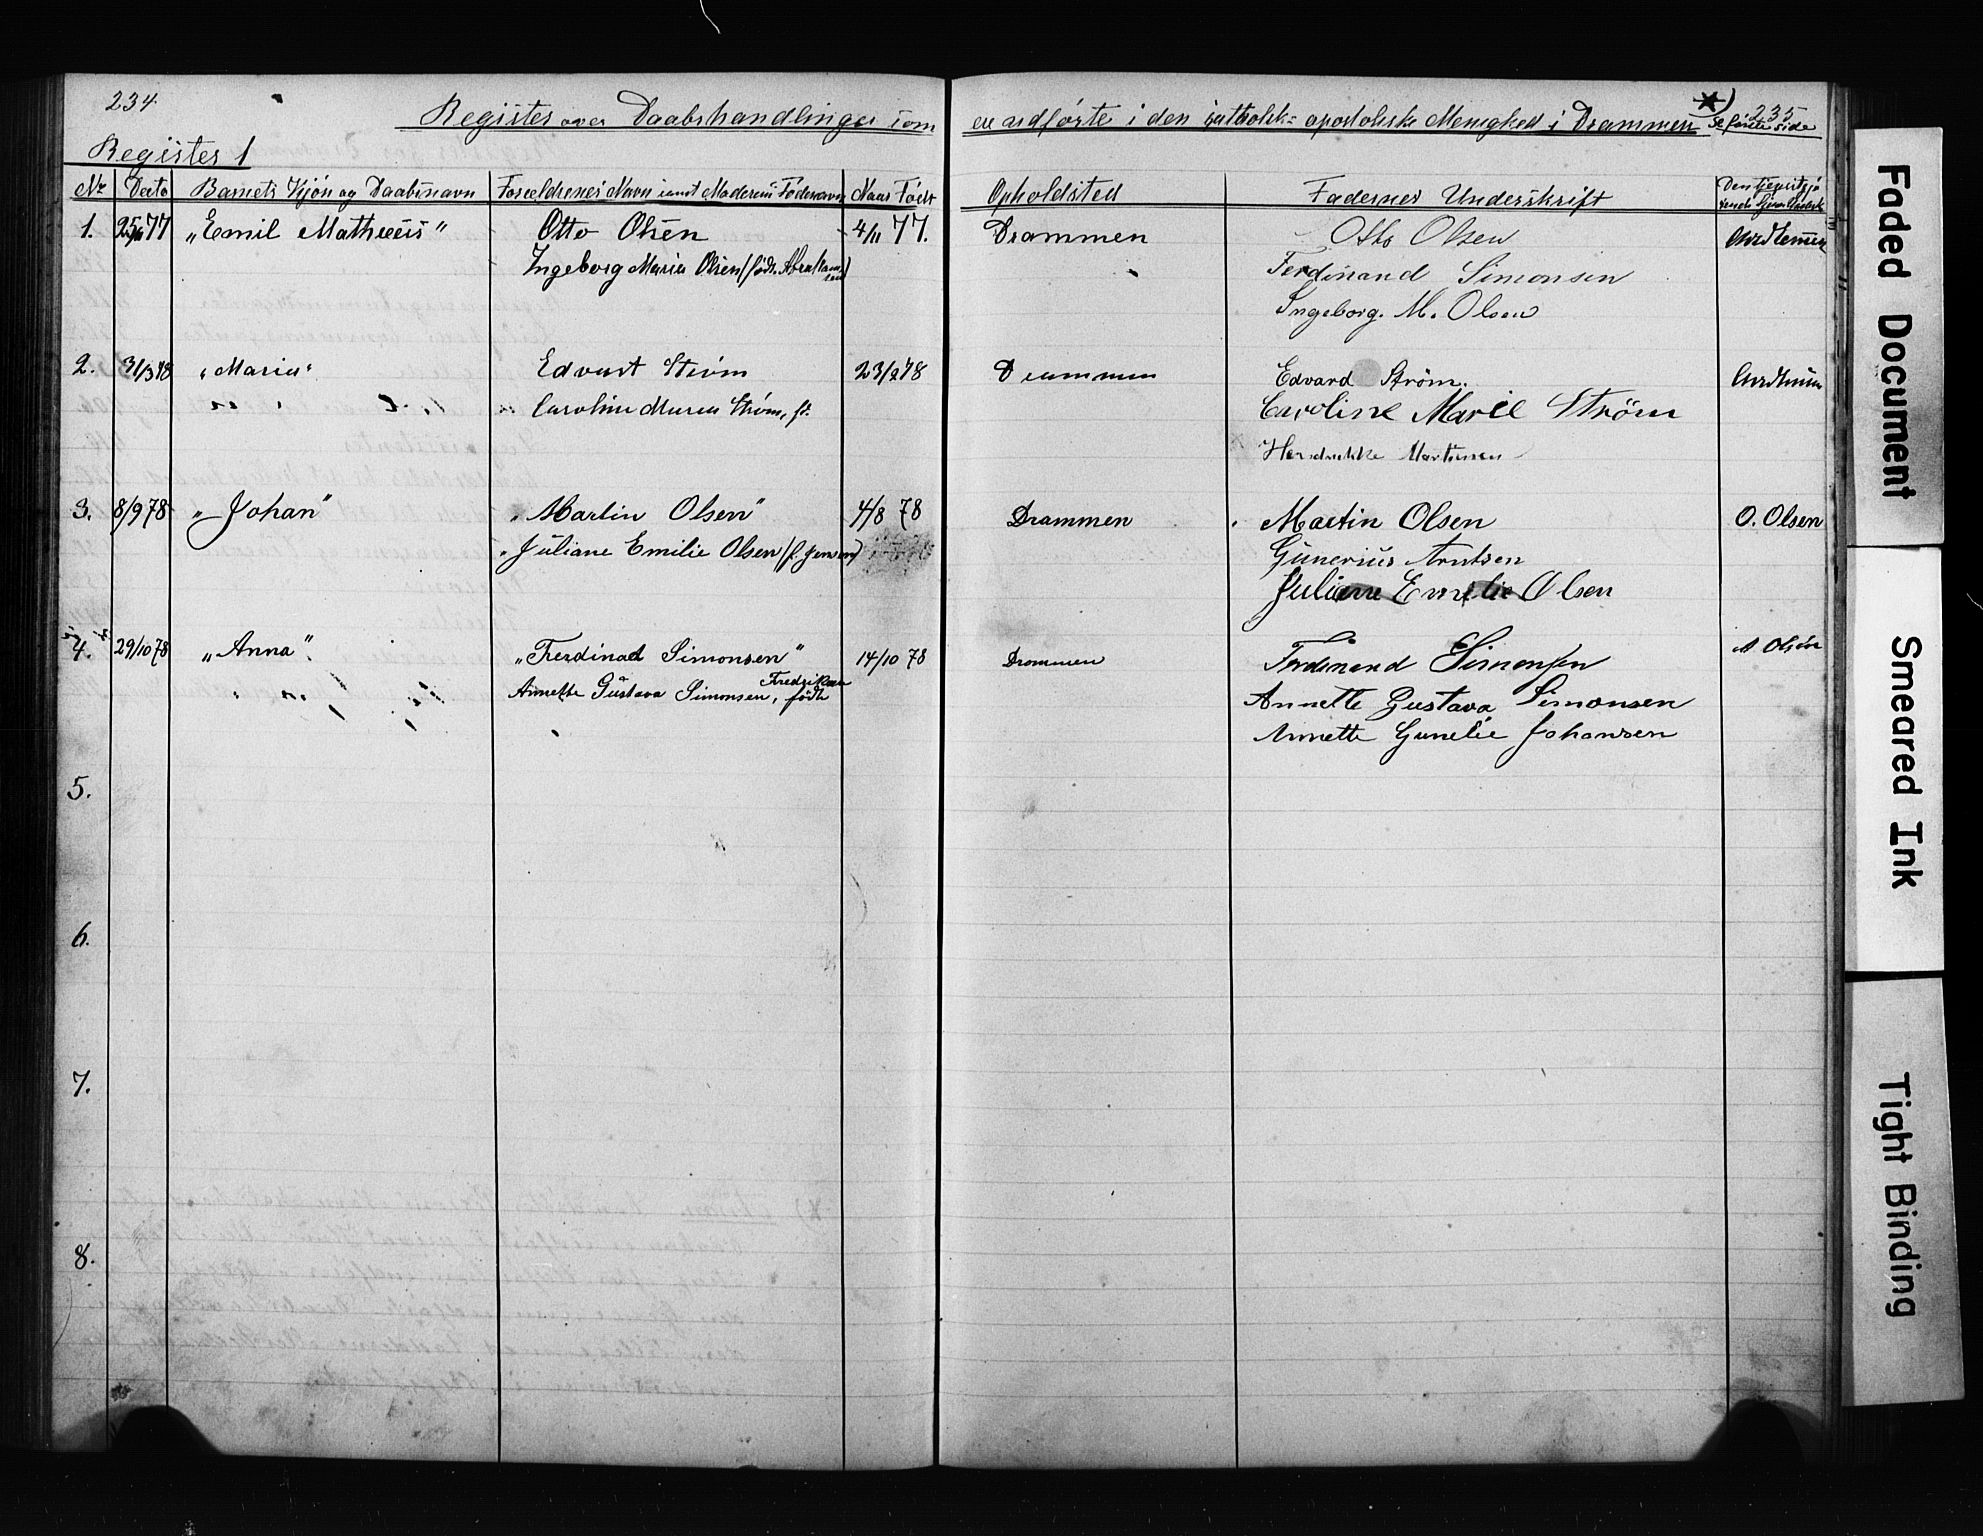 234
Register over Daabshandlinger som
Register 1
Nr Dato Barnets Kjøn og Daabsnavn Forældrenes Navn samt Moderens Fødenavn Naar Født
1. 77 „Emil Matheüs" Otto Olsen 4/11 77.
Ingeborg Maria Olsen (født. Abrahamsen)
2. 31/3 78 „Maria" Edvart Strøm 23/2 78
Caroline Maren Strøm, f.
3. 8/9 78 „Johan" „Martin Olsen" 4/8 78
„Juliane Emilie Olsen (f. Jensen)
4. 29/10 78 „Anna". „Ferdinad Simonsen" 14/10 78
Annette Gustava Simonsen, født Fredriksen
5.
6.
7.
8.
ere udførte i den katholsk-apostoliske Menighed i Drammen *) Se første side
235
Opholdsted Fadernes Underskrift
Drammen Otto Olsen
Ferdinand Simonsen
Ingeborg. M. Olsen
Drammen Edvard Strøm.
Caroline Marie Ström
Hendrikke Martinsen
Drammen Martin Olsen O. Olsen
Gunerius Arntsen
Juliane Emelie Olsen
Drammen Ferdinand Simonsen Olsen
Annette Gustava Simonsen
Annette Gunelie Johansen
Faded Document
Smeared Ink
Tight Binding